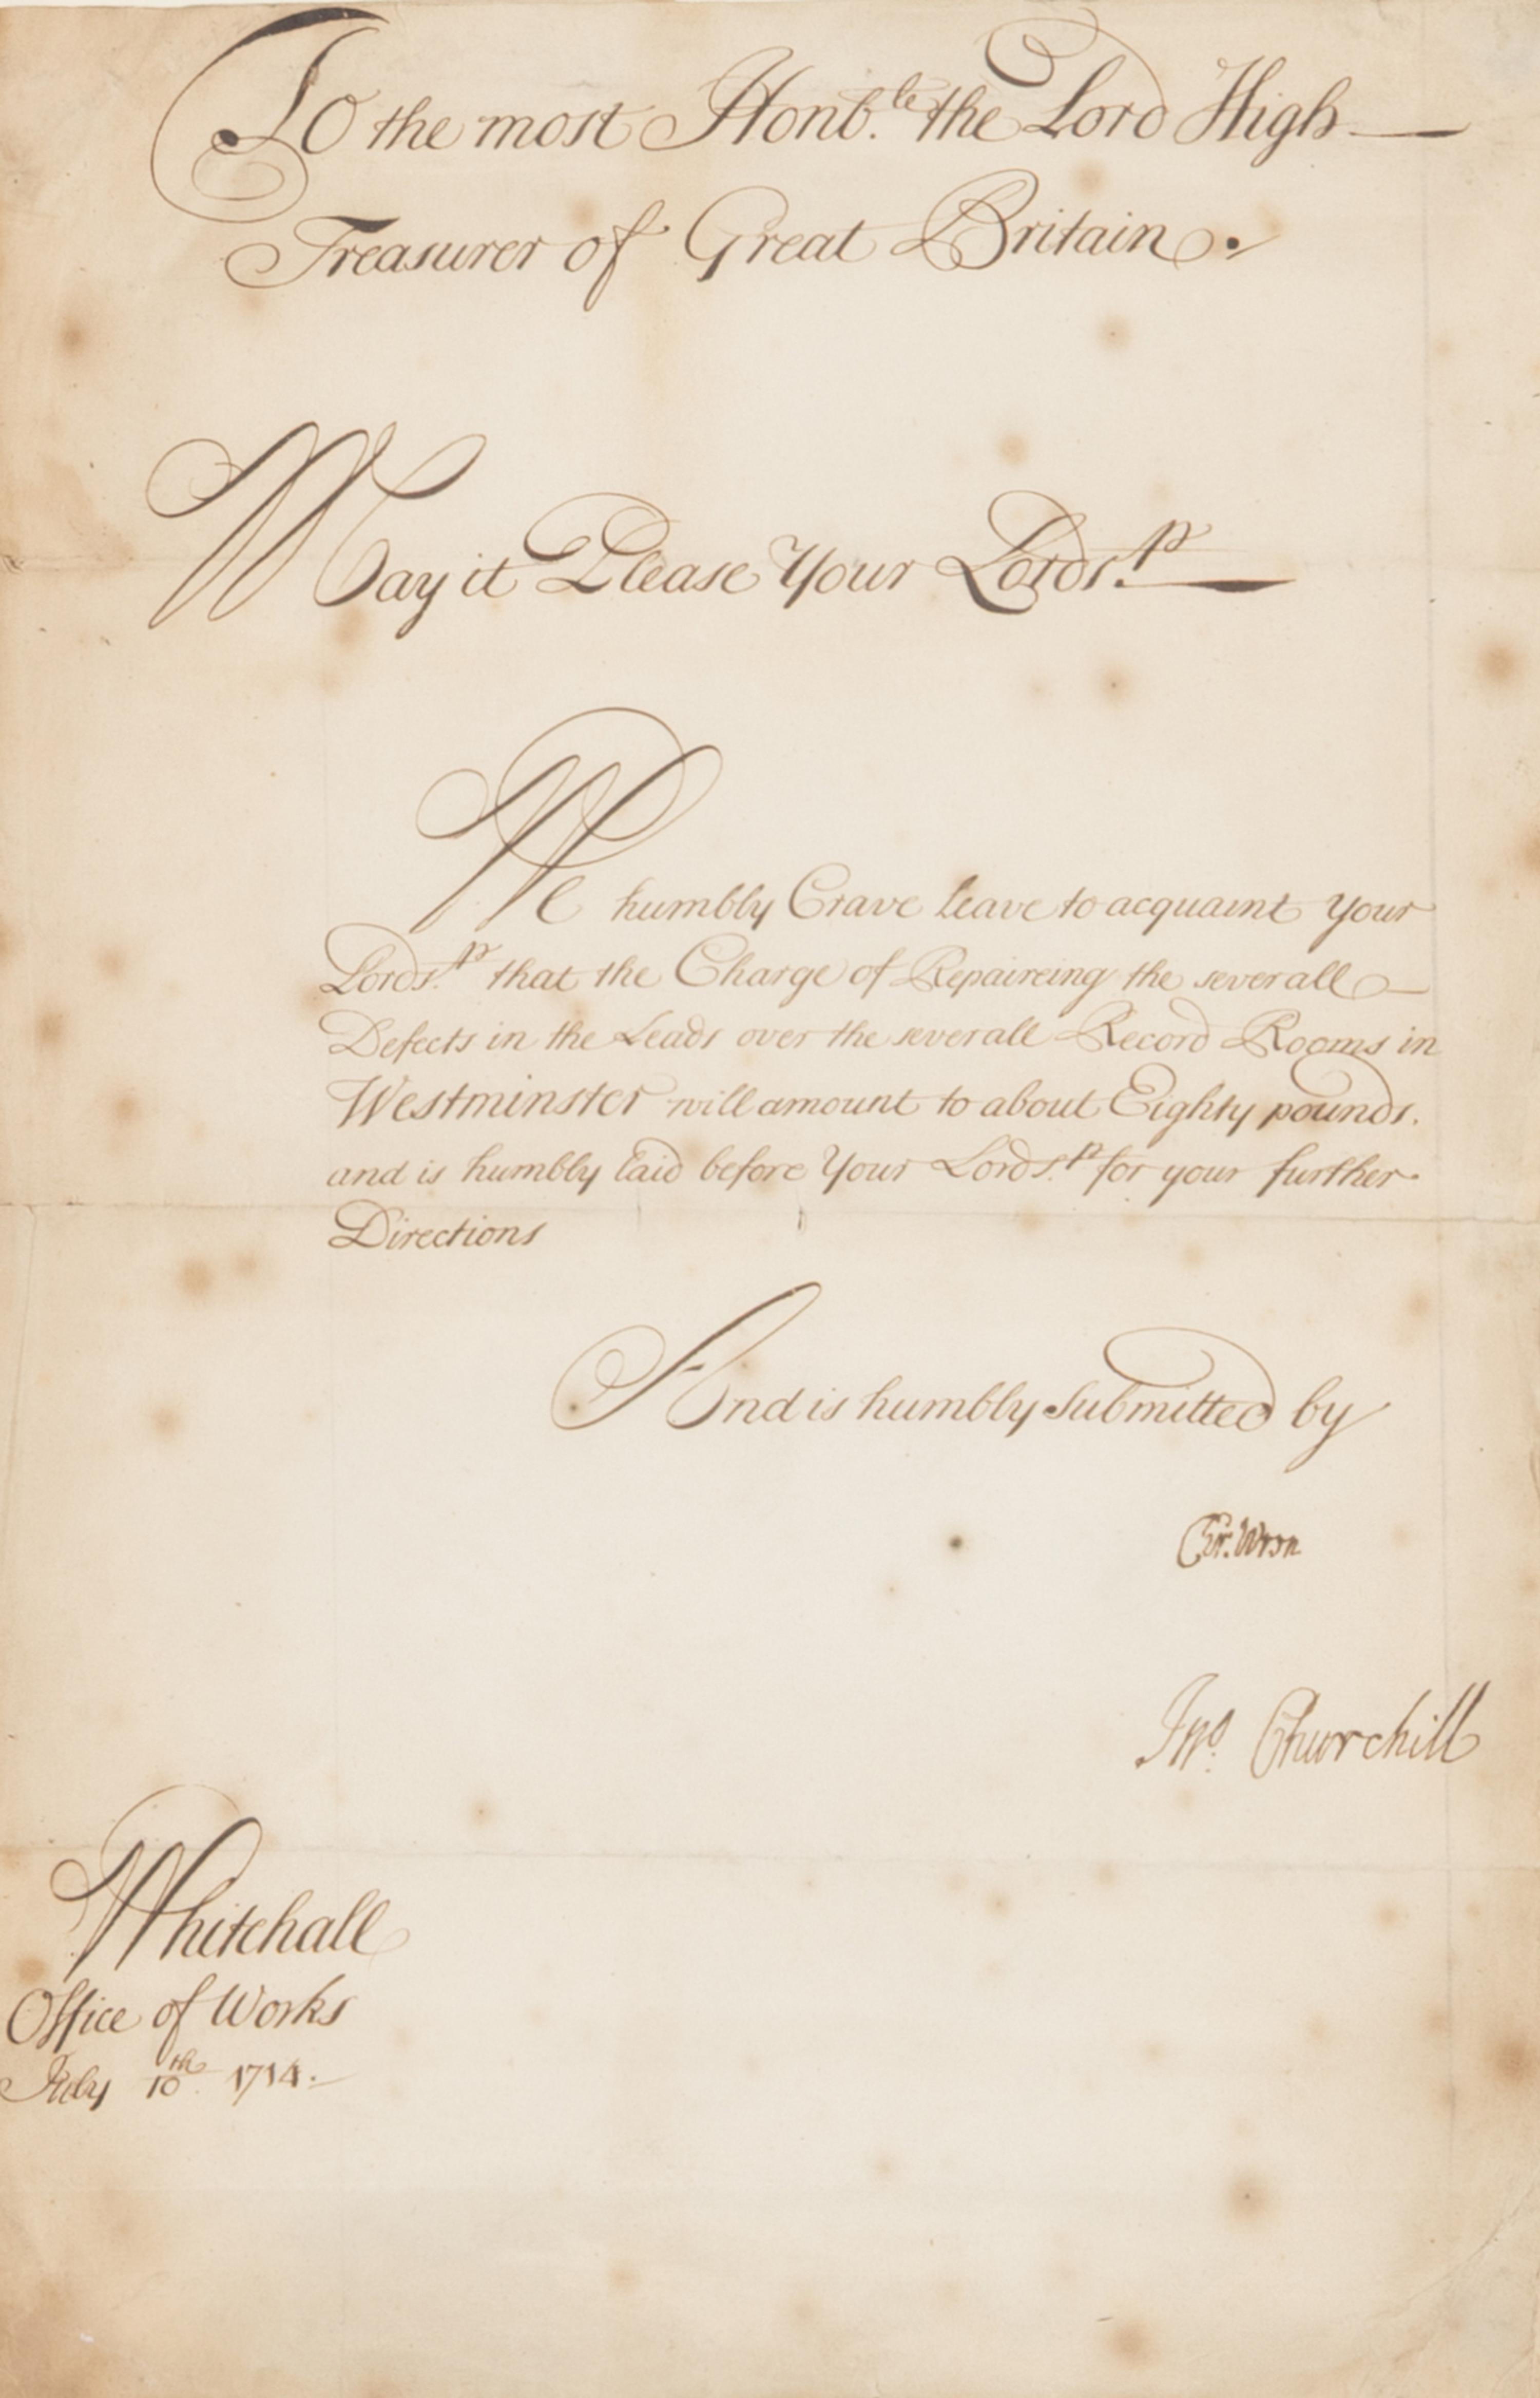 To the most Honb.le the Lord High
Treasurer of Great Britain.
May it Please Your Lords.p
We humbly Crave leave to acquaint Your
Lords.p that the Charge of Repaireing the severall
Defects in the Leads over the severall Record Rooms in
Westminster will amount to about Eighty pounds.
and is humbly laid before Your Lords.p for your further
Directions
And is humbly submitted by
Chr. Wren
Jno. Churchill
Whitehall
Office of Works
July 10th. 1714.